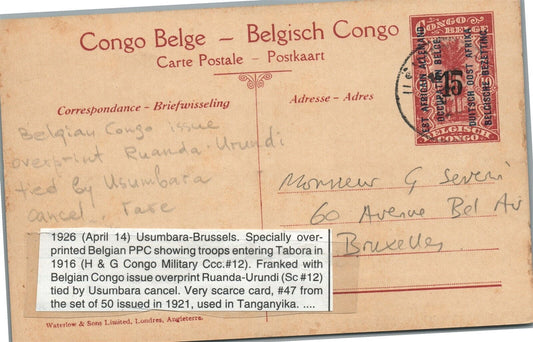 Congo Belge – Belgisch Congo
Carte Postale – Postkaart
Correspondance – Briefwisseling
Adresse – Adres
CONGO BELGE
EST AFRICAIN ALLEMAND
OCCUPATION BELGE
15
DUITSCH OOST AFRIKA
BELGISCHE BEZETTING
BELGISCH
CONGO
Belgian Congo issue
overprint Ruanda-Urundi
tied by Usumbara
cancel.. rare
Monsieur G Severi
60 Avenue Bel Air
Bruxelles
1926 (April 14) Usumbara-Brussels. Specially over-
printed Belgian PPC showing troops entering Tabora in
1916 (H & G Congo Military Ccc.#12). Franked with
Belgian Congo issue overprint Ruanda-Urundi (Sc #12)
tied by Usumbara cancel. Very scarce card, #47 from
the set of 50 issued in 1921, used in Tanganyika. ....
Waterlow & Sons Limited, Londres, Angleterre.